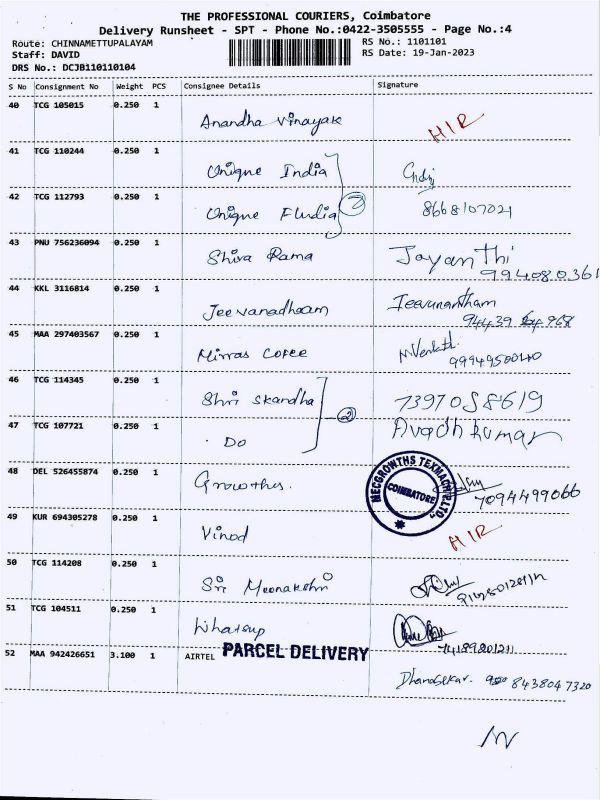 THE PROFESSIONAL COURIERS, Coimbatore
Delivery Runsheet - SPT - Phone No.:0422-3505555 - Page No.:4
Route: CHINNAMETTUPALAYAM RS No.: 1101101
Staff: DAVID RS Date: 19-Jan-2023
DRS No.: DCJB110110104
S No Consignment No Weight PCS Consignee Details Signature
40 TCG 105015 0.250 1
Anandha Vinayak HIR
41 TCG 110244 0.250 1
Unique India
42 TCG 112793 0.250 1
Unique FIndia 2 8668107021
43 PNU 756236094 0.250 1
Shiva Rama Jayanthi
994080361
44 KKL 3116814 0.250 1
Jeevanadham Jeevanantham
94439 968
45 MAA 297403567 0.250 1
Mirras Cofee MVenkath
9994950040
46 TCG 114345 0.250 1
Shri Skandha 7397058619
47 TCG 107721 0.250 1
Do 2 Avadh Kumar
48 DEL 526455874 0.250 1
Growthes. MECGROWTHS TEXMACH P LTD., COIMBATORE
7094499066
49 KUR 694305278 0.250 1
Vinod HIR
50 TCG 114208 0.250 1
Sri Meenakshi
51 TCG 104511 0.250 1
Whatsup
52 MAA 942426651 3.100 1 AIRTEL PARCEL DELIVERY
Dhanasekar. 8438047320